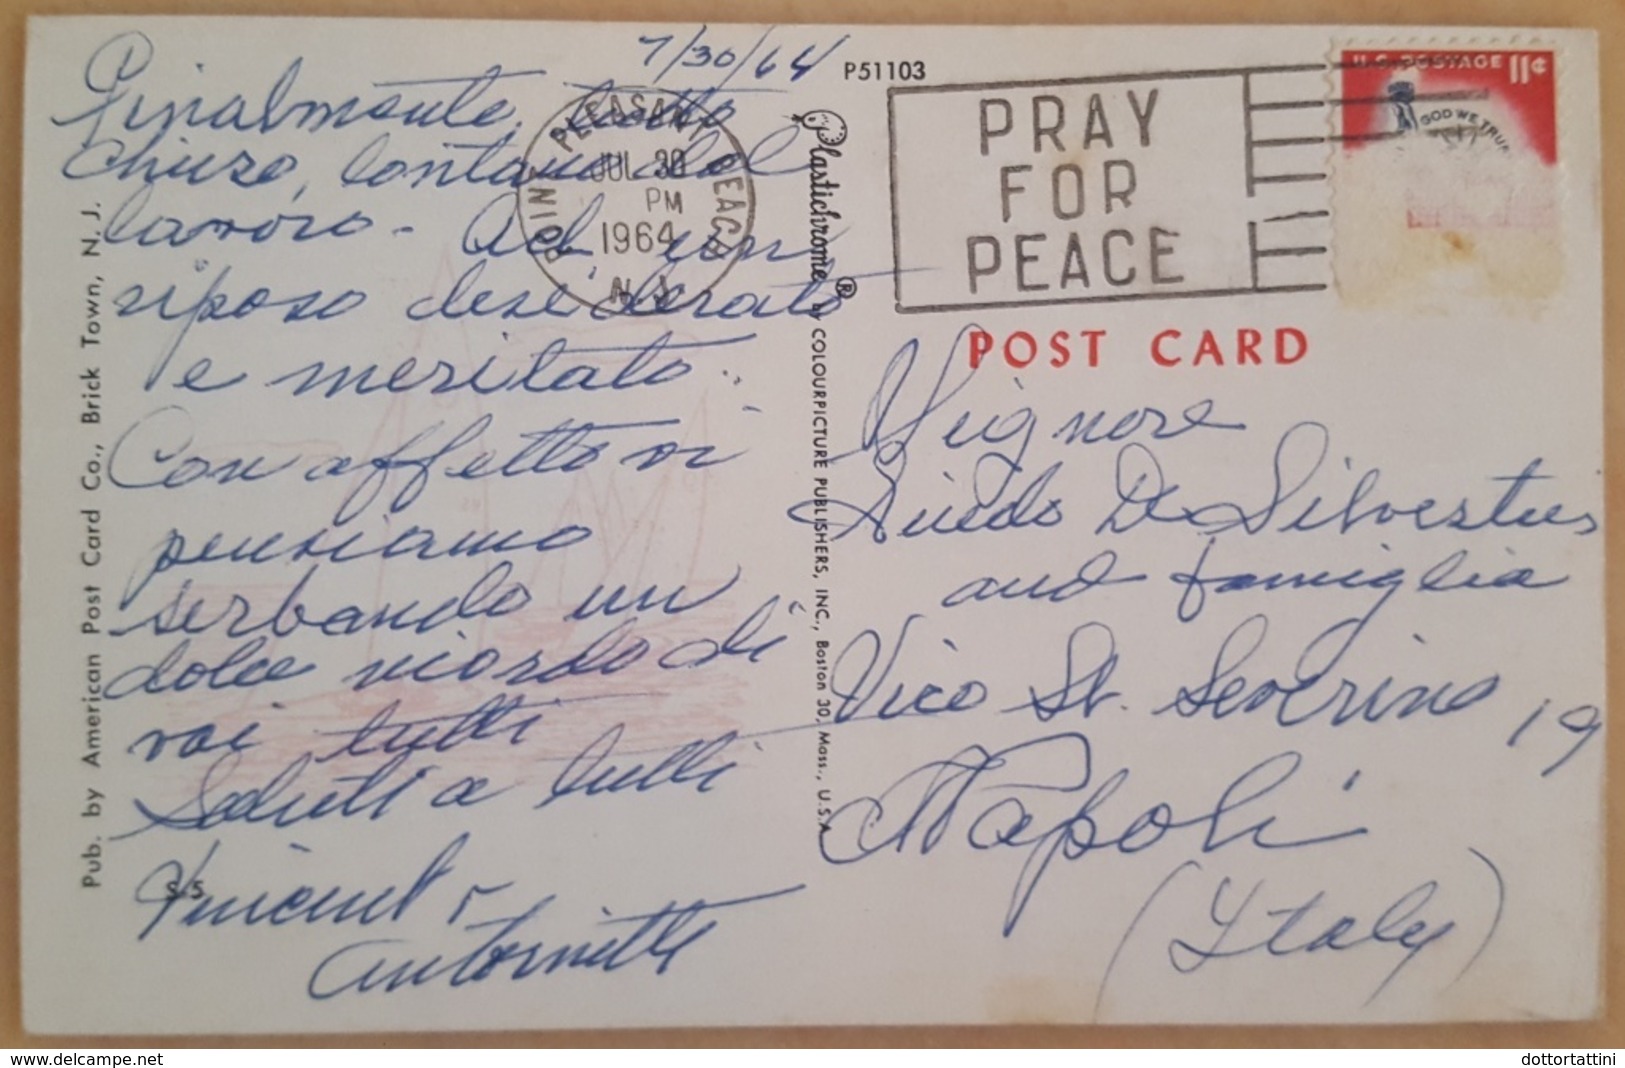 7/30/64
Finalmente, tutto
chiuso, lontano dal
lavoro - Ad un
riposo desiderato
e meritato.
Con affetto vi
pensiamo
serbando un
dolce ricordo di
voi tutti
Saluti a tutti
Vincent &
Antoinette
Pub. by American Post Card Co., Brick Town, N. J.
S-5
POINT PLEASANT BEACH
JUL 30
PM
1964
N. J.
P51103
Plastichrome® by COLOURPICTURE PUBLISHERS, INC., Boston 30, Mass., U.S.A.
PRAY
FOR
PEACE
U.S. POSTAGE 11¢
GOD WE TRUST
POST CARD
Signore
Guido De Silvestris
and famiglia
Vico St. Severino 19
Napoli
(Italy)
www.delcampe.net
dottortattini